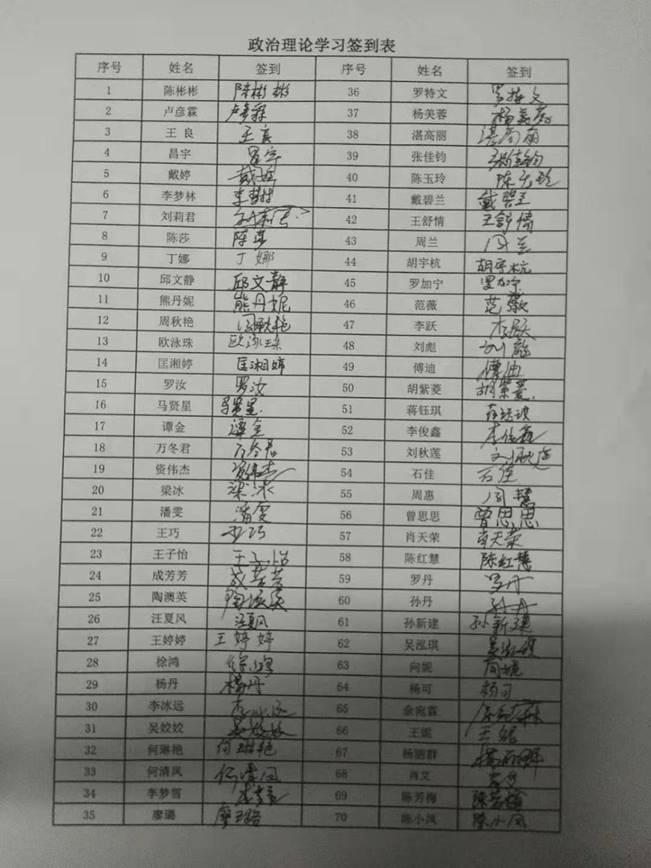 政治理论学习签到表
序号 姓名 签到 序号 姓名 签到
1 陈彬彬 陈彬彬 36 罗特文 罗特文
2 卢彦霖 卢彦霖 37 杨美蓉 杨美蓉
3 王良 王良 38 湛高丽 湛高丽
4 昌宇 昌宇 39 张佳钧 张佳钧
5 戴婷 戴婷 40 陈玉玲 陈玉玲
6 李梦林 李梦林 41 戴碧兰 戴碧兰
7 刘莉君 刘莉君 42 王舒情 王舒情
8 陈莎 陈莎 43 周兰 周兰
9 丁娜 丁娜 44 胡宇杭 胡宇杭
10 邱文静 邱文静 45 罗加宁 罗加宁
11 熊丹妮 熊丹妮 46 范薇 范薇
12 周秋艳 周秋艳 47 李跃 李跃
13 欧泳珠 欧泳珠 48 刘彪 刘彪
14 匡湘婷 匡湘婷 49 傅迪 傅迪
15 罗汝 罗汝 50 胡紫菱 胡紫菱
16 马贤星 马贤星 51 蒋钰琪 蒋钰琪
17 谭金 谭金 52 李俊鑫 李俊鑫
18 万冬君 万冬君 53 刘秋莲 刘秋莲
19 资伟杰 资伟杰 54 石佳 石佳
20 梁冰 梁冰 55 周惠 周慧
21 潘雯 潘雯 56 曾思思 曾思思
22 王巧 王巧 57 肖天荣 肖天荣
23 王子怡 王子怡 58 陈红慧 陈红慧
24 成芳芳 成芳芳 59 罗丹 罗丹
25 陶澳英 陶澳英 60 孙丹 孙丹
26 汪夏风 汪夏风 61 孙新建 孙新建
27 王婷婷 王婷婷 62 吴泓琪 吴泓琪
28 徐鸿 徐鸿 63 向妮 向妮
29 杨丹 杨丹 64 杨可 杨可
30 李冰远 李冰远 65 余宛霖
31 吴姣姣 吴姣姣 66 王妮 王妮
32 何琳艳 何琳艳 67 杨丽群 杨丽群
33 何清凤 何清凤 68 肖文 肖文
34 李梦雪 69 陈芳梅 陈芳梅
35 廖璐 廖璐 70 陈小凤 陈小凤